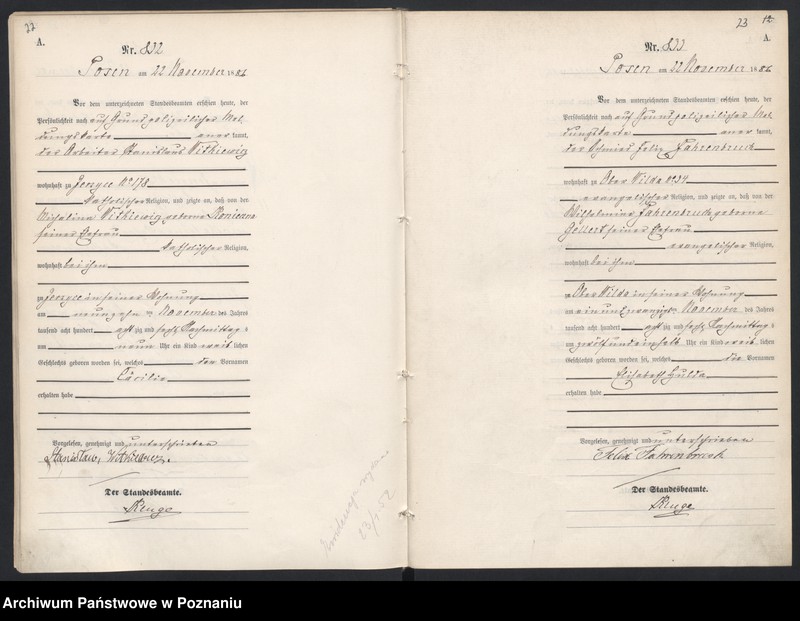 22
A.
Nr. 832
Posen am 22 November 1886
Vor dem unterzeichneten Standesbeamten erschien heute, der
Persönlichkeit nach auf Grund polizeilicher Mel
dungskarte anerkannt,
der Arbeiter Stanislaus Witkiewicz
wohnhaft zu Jerzyce No 178
katholischer Religion, und zeigte an, daß von der
Michalina Witkiewicz geborene
seiner Ehefrau
katholischer Religion,
wohnhaft bei ihm
zu Jerzyce in seiner Wohnung
am neunzehn ten November des Jahres
tausend acht hundert achtzig und sechs Nachmittags
um neun Uhr ein Kind weiblichen
Geschlechts geboren worden sei, welches den Vornamen
Cäcilia
erhalten habe
Vorgelesen, genehmigt und unterschrieben
Stanisław Witkiewicz.
Der Standesbeamte.
23/1.52
23 12
A.
Nr. 833
Posen am 22 November 1886
Vor dem unterzeichneten Standesbeamten erschien heute, der
Persönlichkeit nach auf Grund polizeilicher Mel
dungskarte anerkannt,
der Schmied Felix Fahrenbruch
wohnhaft zu Ober Wilda No 34
evangelischer Religion, und zeigte an, daß von der
Wilhelmine Fahrenbruch geborene
Gellert seiner Ehefrau
evangelischer Religion,
wohnhaft bei ihm
zu Ober Wilda in seiner Wohnung
am ein und zwanzigsten November des Jahres
tausend acht hundert achtzig und sechs Nachmittags
um zwölf und einhalb Uhr ein Kind weiblichen
Geschlechts geboren worden sei, welches die Vornamen
Elisabeth Hulda
erhalten habe
Vorgelesen, genehmigt und unterschrieben
Felix Fahrenbruch
Der Standesbeamte.
Archiwum Państwowe w Poznaniu